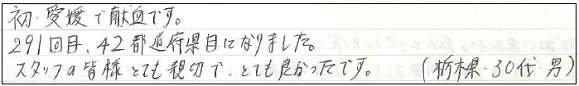 初・愛媛で献血です。
291回目、42都道府県目になりました。
スタッフの皆様とても親切で、とても良かったです。 (栃木県・30代 男)